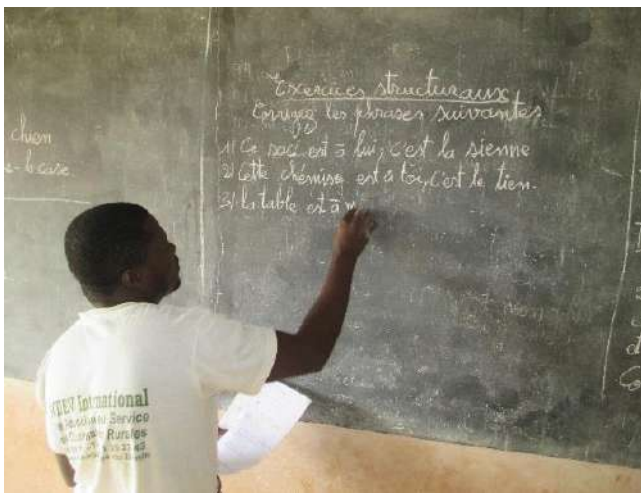 chien
case
Exercices structuraux
Corrigez les phrases suivantes
1) Ce sac est à lui, c'est la sienne
2) Cette chemise est à toi, c'est le tien.
3) La table est à m
International
Service
Rurales